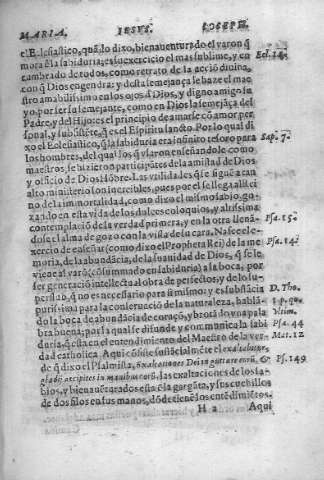 MARIA. IESVS. IOSEPH.
el Eclesiastico, quãdo dixo, bienauenturado el varon q̃
mora ẽ la sabiduria; es su exercicio el mas sublime, y en
cumbrado de todos, como retrato de la acciõ diuina,
con q̃ Dios engendra: y desta semejança le haze el mae
stro amabilissimo en los ojos d̃ Dios, y digno amigo su
yo, por ser su semejante, como en Dios la semejãça del
Padre, y del Hijo: es el principio de amarse cõ amor per
sonal, y subsistẽte, q̃ es el Espiritu sancto. Por lo qual di
xo el Eclesiastico, q̃ la sabiduria era infinito tesoro para
los hombres, del qual los q̃ vsaron enseñandole como
maestros, se hizieron participãtes de la amistad de Dios
y oficio de Dios Hõbre. Las vtilidades que se siguẽ a tan
alto ministerio son increibles, pues por el se llega al ssi
no de la immortalidad, como dixo el mismo sabio, go-
zando en esta vida de los dulces coloquios, y altissima
contemplaciõ de la verdad primera, y en la otra llenã-
dose el alma de gozo con la vista de su cara. Nace ele-
xercio de enseñar (como dixo el Propheta Rei) de la me
moria, de la abundãcia, de la suauidad de Dios, q̃ se le
viene al varõ (cõsummado en sabiduria) a la boca, por
ser generaciõ intelectual obra de perfectos, y de lo su-
perfluo, q̃ no es necessario para si mismo; y es substãcia
purissima para la conseruaciõ de la naturaleza, hablã-
do la boca de abundãcia de coraçõ, y brotãdo vna pala
bra buena; por la qual se difunde y communica la sabi
duria, q̃ esta en el entendimiento del Maestro de la ver
dad catholica. Aqui cõsiste sustãcialmẽte el exaltabunt,
de q̃ dixo el Psalmista, exaltationes Dei in gutture eorũ, &
gladij ancipites in manibus eorũ, las exaltaciones de los sa-
bios, y bienauẽturados esta ẽ la gargãta, y sus cuchillos
de dos filos en sus manos, dõde tienẽ los entẽdimiẽtos.
H 2 Aqui
Ecl. 14.
Sap. 7.
Psa. 15.
Psa. 14
D. Tho.
1 p. que.
Psa. 44
Mat. 12
Ps. 149